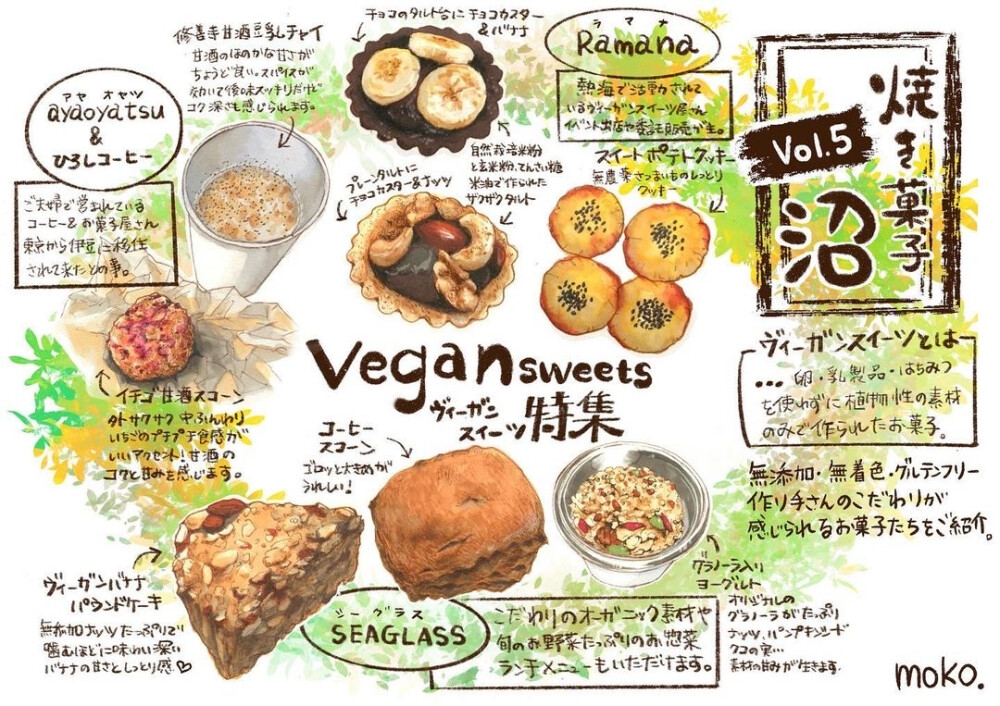 焼き菓子
沼
Vol.5
ヴィーガンスイーツとは
…卵・乳製品・はちみつ
を使わずに植物性の素材
のみで作られたお菓子。
無添加・無着色・グルテンフリー
作り手さんのこだわりが
感じられるお菓子たちをご紹介。
Vegan sweets
ヴィーガン
スイーツ 特集
アヤ オヤツ
ayaoyatsu
&
ひろしコーヒー
ご夫婦で営まれている
コーヒー&お菓子屋さん
東京から伊豆に移住
されて来たとの事。
修善寺甘酒豆乳チャイ
甘酒のほのかな甘さが
ちょうど良い。スパイスが
効いて後味スッキリだけど
コク深さも感じられます。
イチゴ甘酒スコーン
外サクサク 中ふんわり
いちごのプチプチ食感が
いいアクセント!甘酒の
コクと甘みを感じます。
チョコのタルト台にチョコカスター
&バナナ
プレーンタルトに
チョコカスター&ナッツ
自然栽培米粉
と玄米粉、てんさい糖
米油で作られた
ザクザクタルト
ラマナ
Ramana
熱海で活動されて
いるヴィーガンスイーツ屋さん
イベント出店や委託販売が主。
スイートポテトクッキー
無農薬さつまいものしっとり
クッキー
コーヒー
スコーン
ゴロッと大きめが
うれしい!
ヴィーガンバナナ
パウンドケーキ
無添加ナッツたっぷりで
噛むほどに味わい深い
バナナの甘さとしっとり感♡
シーグラス
SEAGLASS
こだわりのオーガニック素材や
旬のお野菜たっぷりのお惣菜
ランチメニューもいただけます。
グラノーラ入り
ヨーグルト
オリジナルの
グラノーラがたっぷり
ナッツ、パンプキンシード
クコの実…
素材の甘みが生きます。
moko.